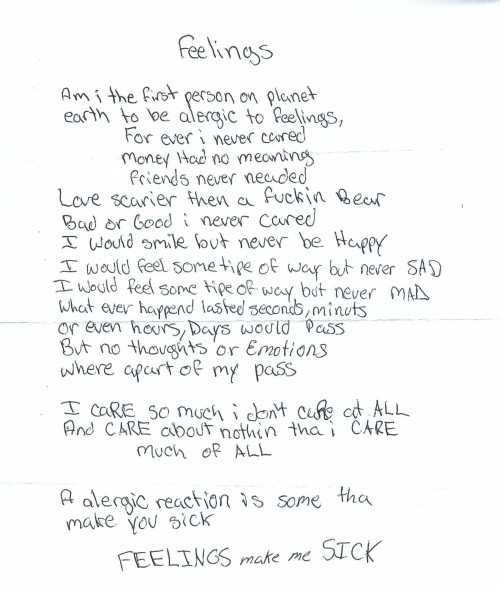 Feelings
Am i the first person on planet
earth to be alergic to feelings,
For ever i never cared
money Had no meaning
friends never neaded
Love scarier then a fuckin Bear
Bad or Good i never cared
I would smile but never be Happy
I would feel some tipe of way but never SAD
I would feel some tipe of way but never MAD
what ever happend lasted seconds, minuts
or even hours, Days would Pass
But no thoughts or Emotions
where apart of my pass
I CARE so much i don't care at ALL
And CARE about nothin tha i CARE
much of ALL
A alergic reaction is some tha
make you sick
FEELINGS make me SICK